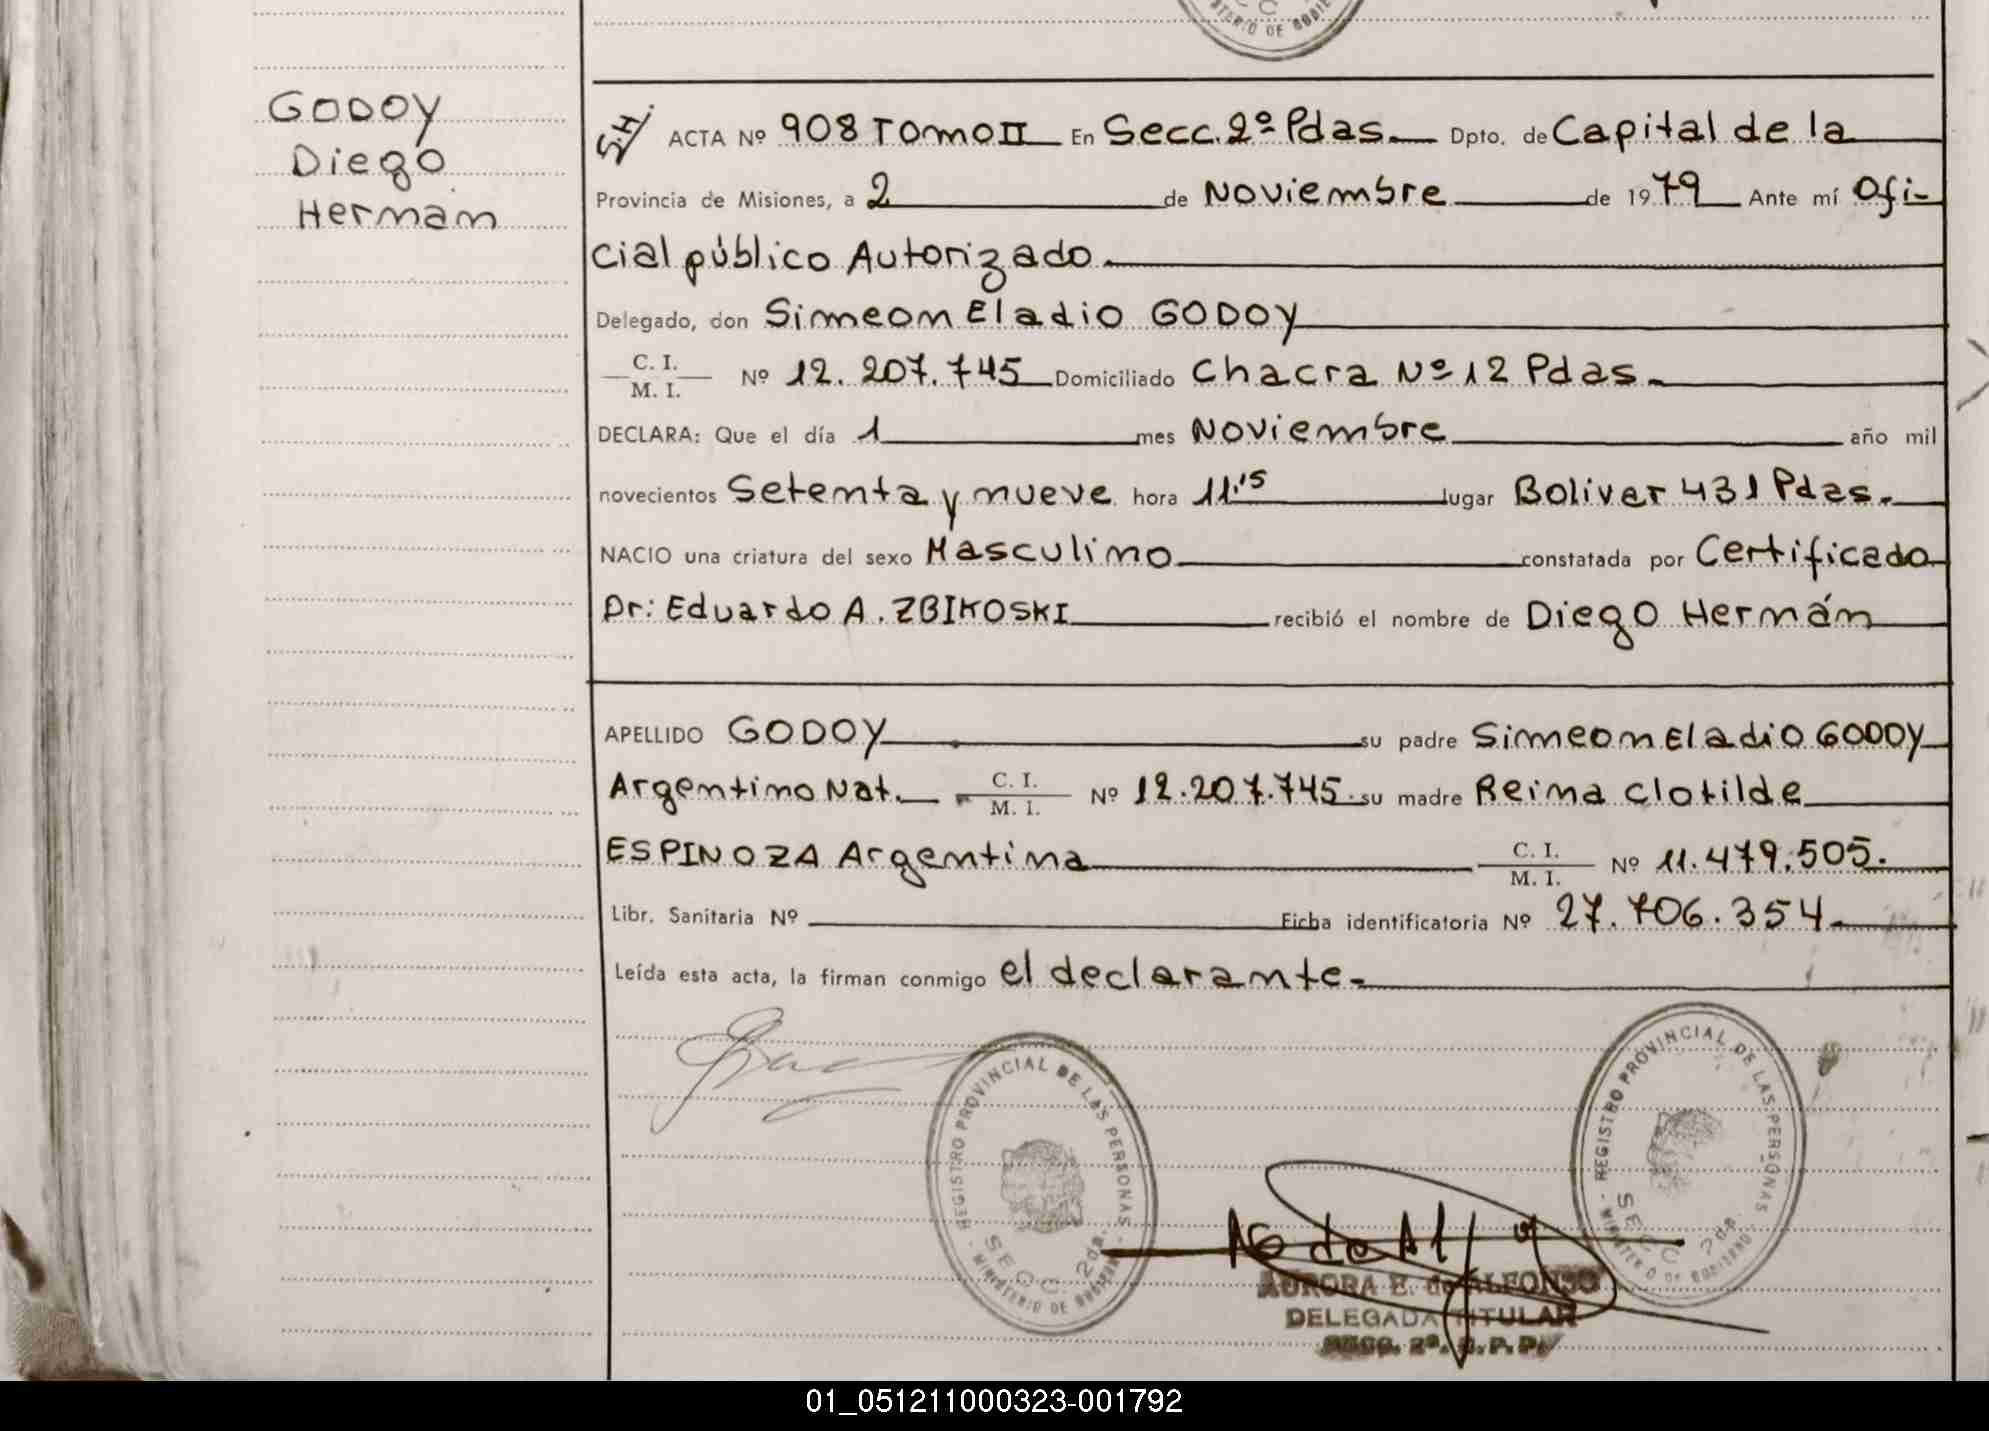 GODOY
Diego
Hermam
S.H.
ACTA Nº 908 Tomo II En Secc. 2º Pdas. Dpto. de Capital de la
Provincia de Misiones, a 2 de Noviembre de 1979 Ante mí Ofi-
cial público Autorizado.
Delegado, don Simeom Eladio GODOY
C. I.
M. I. Nº 12.207.745 Domiciliado Chacra Nº 12 Pdas.
DECLARA: Que el día 1 mes Noviembre año mil
novecientos Setenta y nueve hora 11:15 lugar Boliver 431 Pdas.
NACIO una criatura del sexo Masculino constatada por Certificado
Dr: Eduardo A. ZBIKOSKI recibió el nombre de Diego Hermán
APELLIDO GODOY su padre Simeom Eladio GODOY
Argentino Nat. C. I.
M. I. Nº 12.207.745. su madre Reina Clotilde
ESPINOZA Argentina C. I.
M. I. Nº 11.479.505.
Libr. Sanitaria Nº Ficha identificatoria Nº 27.706.354.
Leída esta acta, la firman conmigo el declarante.
REGISTRO PROVINCIAL DE LAS PERSONAS
SECC. 2da.
MINISTERIO DE GOBIERNO
REGISTRO PROVINCIAL DE LAS PERSONAS
SECC 2da.
MINISTERIO DE GOBIERNO
AURORA E. de ALFONSO
DELEGADA TITULAR
SECC. 2ª. R. P. P.
01_051211000323-001792